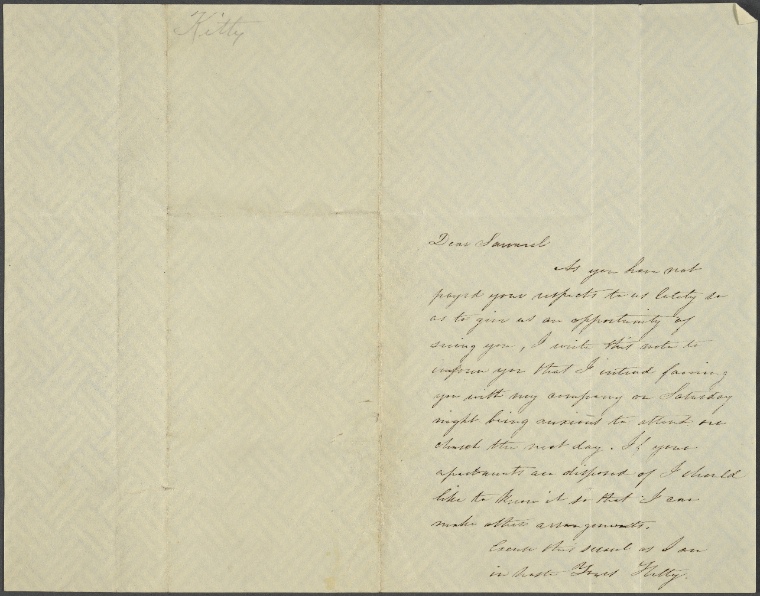 Kitty
Dear Samuel
As you have not
payed your respects to us lately so
as to give us an opportunity of
seeing you, I write this note to
inform you that I intend favoring
you with my company on Saturday
night being anxious to attend our
church the next day. If your
apartments are disposed of I should
like to know it so that I can
make other arrangements.
Excuse this scrawl as I am
in haste Yours Kitty.